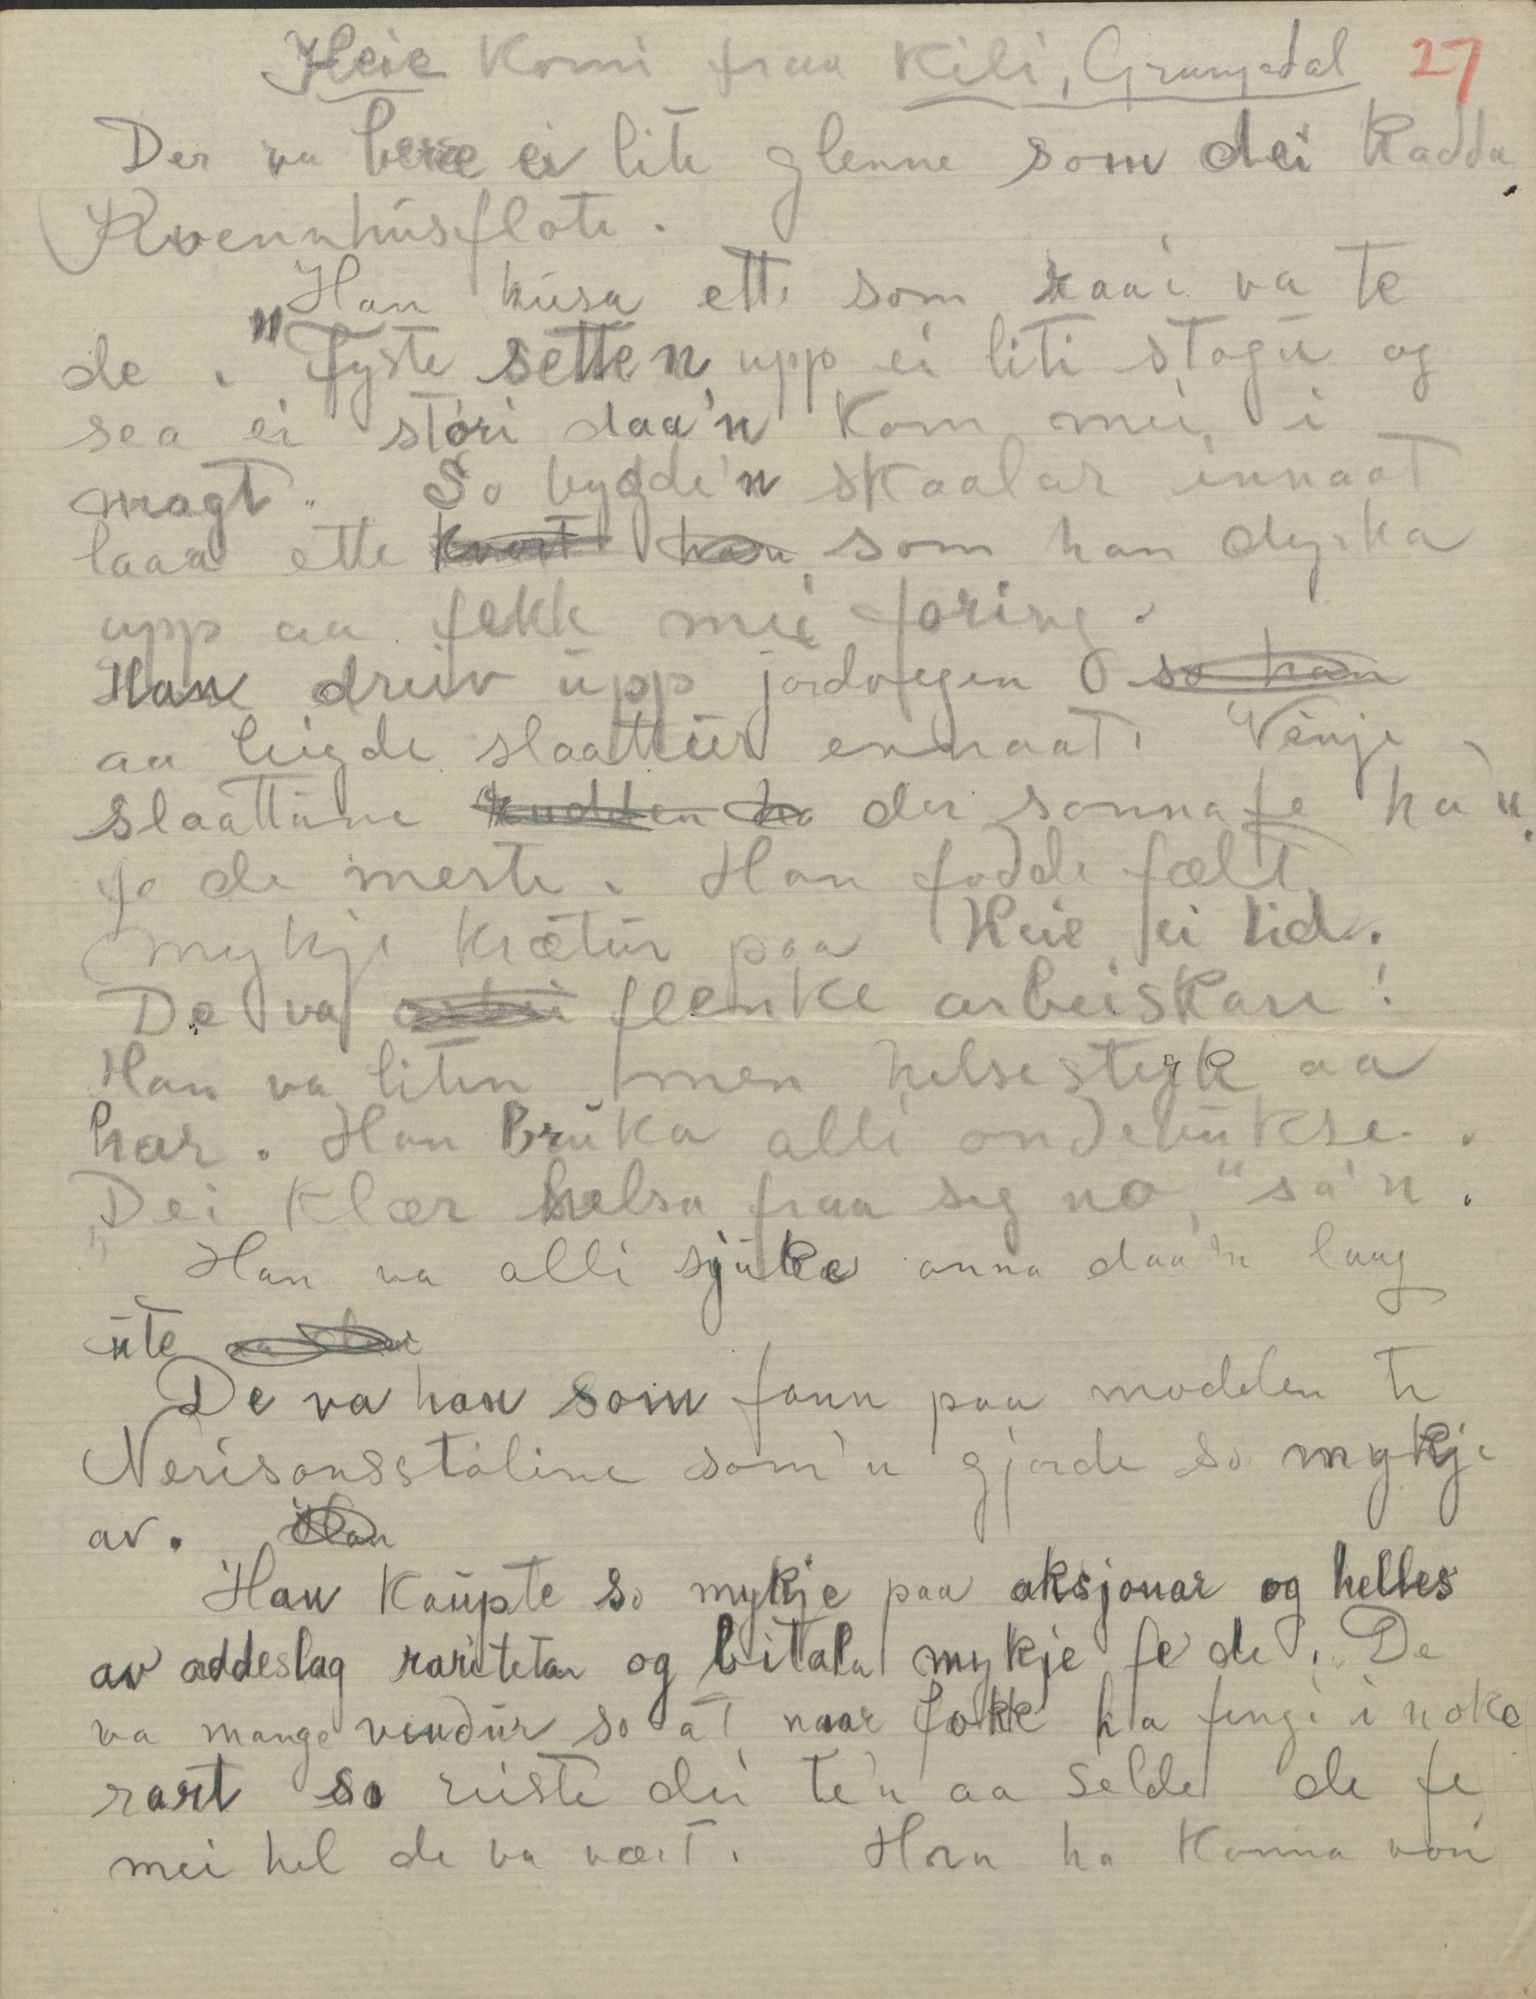 Heie Komi fraa Kili, Grungedal 27
Der va bere ei lite glenne som dei Kadda
Kvennhusflote.
Han húsa ette som raai va te
de. "Fyste sette'n upp ei liti stogú og
sea ei stóri daa'n kom mei i
magt. So bygde'n skaalar innaat
laaa ette kvart han som han dyrka
upp aa fekk mei foring.
Han dreiv úpp jordvegen so han
aa leigde slaattúr ennaat Vinje
slaattúne der sonnafe ha'n
fe de meste. Han fødde fælt
mykje krøtúr paa Heie ei tid.
De va arbei flemke arbeiskare!
Han va liten men helsesterk aa
har. Han brúka alli ondebúkse.
"Dei klær helsa fraa seg no," sa'n.
Han va alli sjúke anna daa'n laag
úte
De va han som fann paa modden te
Nerisonsstóline som'n gjorde so mykje
av. Han
Han kaúpte so mykje paa aksjonar og helles
av addeslag raritetar og bitala mykje fe de. De
va mange vendúr so at naar fokk ha fengi i noko
rart so reiste dei te'n aa selde de fe
mei hel de va vært. Han ha Kanna von